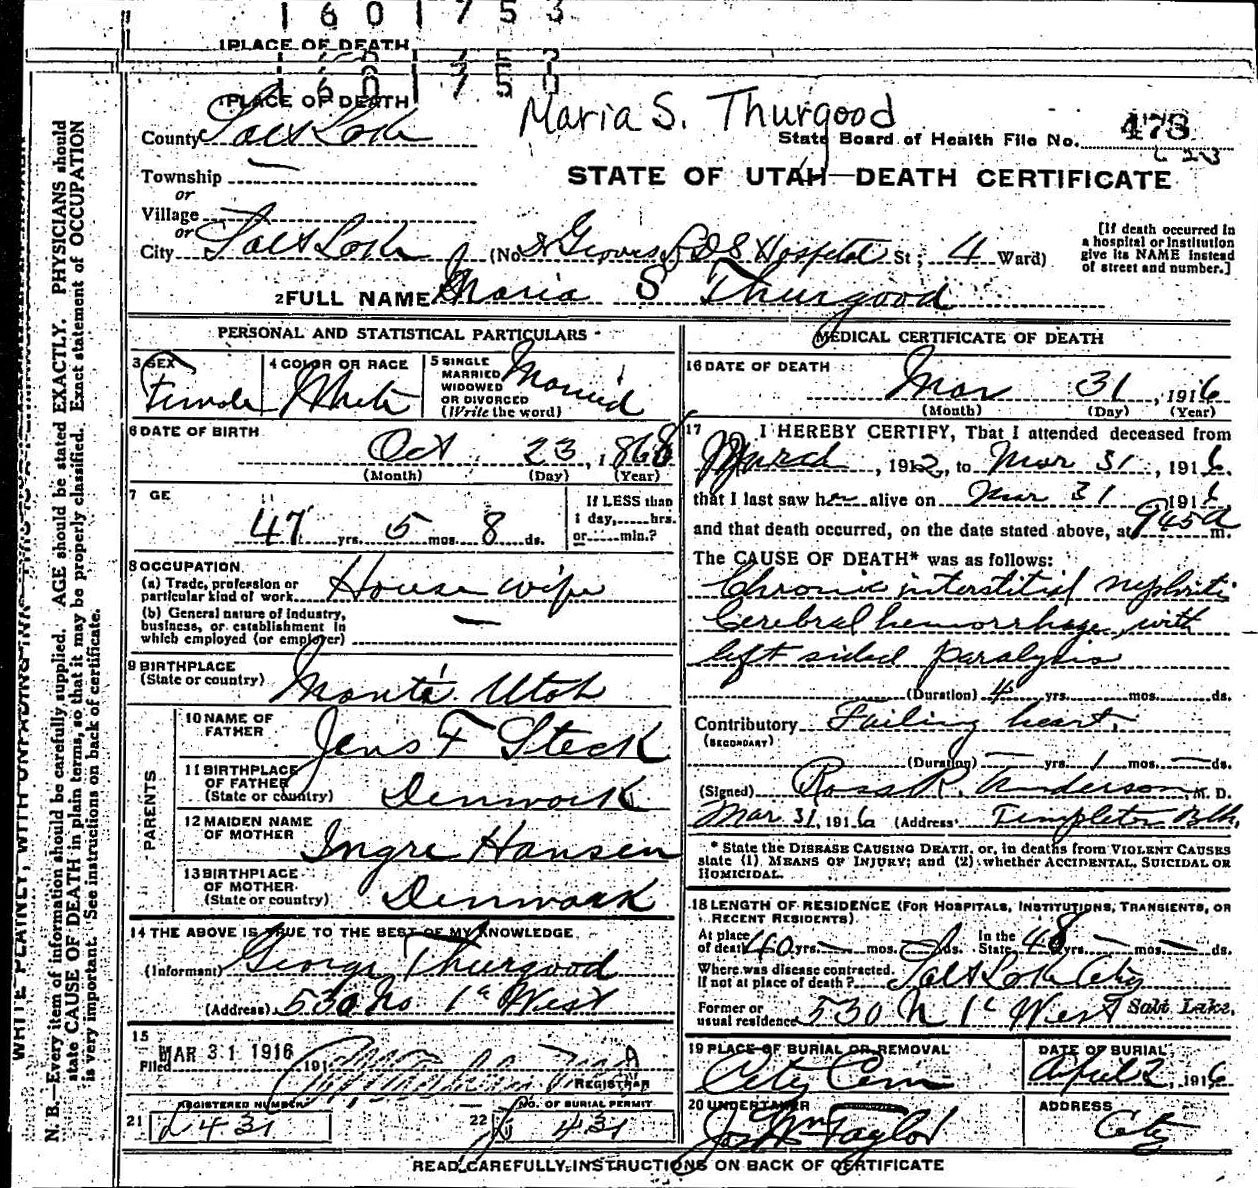 1 6 0 1 7 5 3
1 PLACE OF DEATH
1 6 0 1 7 5 0
1 PLACE OF DEATH
Maria S. Thurgood
County Salt Lake
State Board of Health File No. 473
Township —
or
STATE OF UTAH—DEATH CERTIFICATE
Village
or
City Salt Lake (No. LDS Hospital St; 4 Ward)
[If death occurred in
a hospital or institution
give its NAME instead
of street and number.]
2 FULL NAME Maria S Thurgood
PERSONAL AND STATISTICAL PARTICULARS
3 SEX
Female
4 COLOR OR RACE
White
5 SINGLE
MARRIED
WIDOWED
OR DIVORCED
(Write the word)
Married
6 DATE OF BIRTH
Oct 23, 1868
(Month) (Day) (Year)
7 GE
47 yrs. 5 mos. 8 ds.
If LESS than
1 day,......hrs.
or......min.?
8 OCCUPATION
(a) Trade, profession or
particular kind of work House wife
(b) General nature of industry,
business, or establishment in
which employed (or employer) —
9 BIRTHPLACE
(State or country) Utah
PARENTS
10 NAME OF
FATHER Jens F Steck
11 BIRTHPLACE
OF FATHER
(State or country) Denmark
12 MAIDEN NAME
OF MOTHER Ingre Hansen
13 BIRTHPLACE
OF MOTHER
(State or country) Denmark
14 THE ABOVE IS TRUE TO THE BEST OF MY KNOWLEDGE
(Informant) George Thurgood
(Address) 530 No 1st West
15
Filed MAR 31 1916 191
REGISTRAR
21 REGISTERED NUMBER
L 431
22 NO. OF BURIAL PERMIT
431
MEDICAL CERTIFICATE OF DEATH
16 DATE OF DEATH
Mar 31, 1916
(Month) (Day) (Year)
17 I HEREBY CERTIFY, That I attended deceased from
March, 1912, to Mar 31, 1916.
that I last saw her alive on Mar 31 1916
and that death occurred, on the date stated above, at 945a m.
The CAUSE OF DEATH* was as follows:
Chronic interstitial nephritis
Cerebral hemorrhage, with
left sided paralysis
(Duration) 4 yrs. mos. ds.
Contributory Failing heart.
(SECONDARY)
(Duration) — yrs. 1 mos. — ds.
(Signed) Ross R. Anderson, M. D.
Mar 31, 1916 (Address) Templeton Blk.
* State the DISEASE CAUSING DEATH, or, in deaths from VIOLENT CAUSES
state (1) MEANS OF INJURY; and (2) whether ACCIDENTAL, SUICIDAL OR
HOMICIDAL.
18 LENGTH OF RESIDENCE (FOR HOSPITALS, INSTITUTIONS, TRANSIENTS, OR
RECENT RESIDENTS).
At place
of death 40 yrs. — mos. ds. In the
State 48 yrs. — mos. — ds.
Where was disease contracted.
If not at place of death? Salt Lake City
Former or
usual residence 530 N 1st West Salt Lake.
19 PLACE OF BURIAL OR REMOVAL
City Cem
DATE OF BURIAL
April 2, 1916
20 UNDERTAKER
Jos Wm Taylor
ADDRESS
City
READ CAREFULLY INSTRUCTIONS ON BACK OF CERTIFICATE
WRITE PLAINLY, WITH UNFADING INK
N. B.—Every item of information should be carefully supplied. AGE should be stated EXACTLY. PHYSICIANS should
state CAUSE OF DEATH in plain terms, so that it may be properly classified. Exact statement of OCCUPATION
is very important. See instructions on back of certificate.